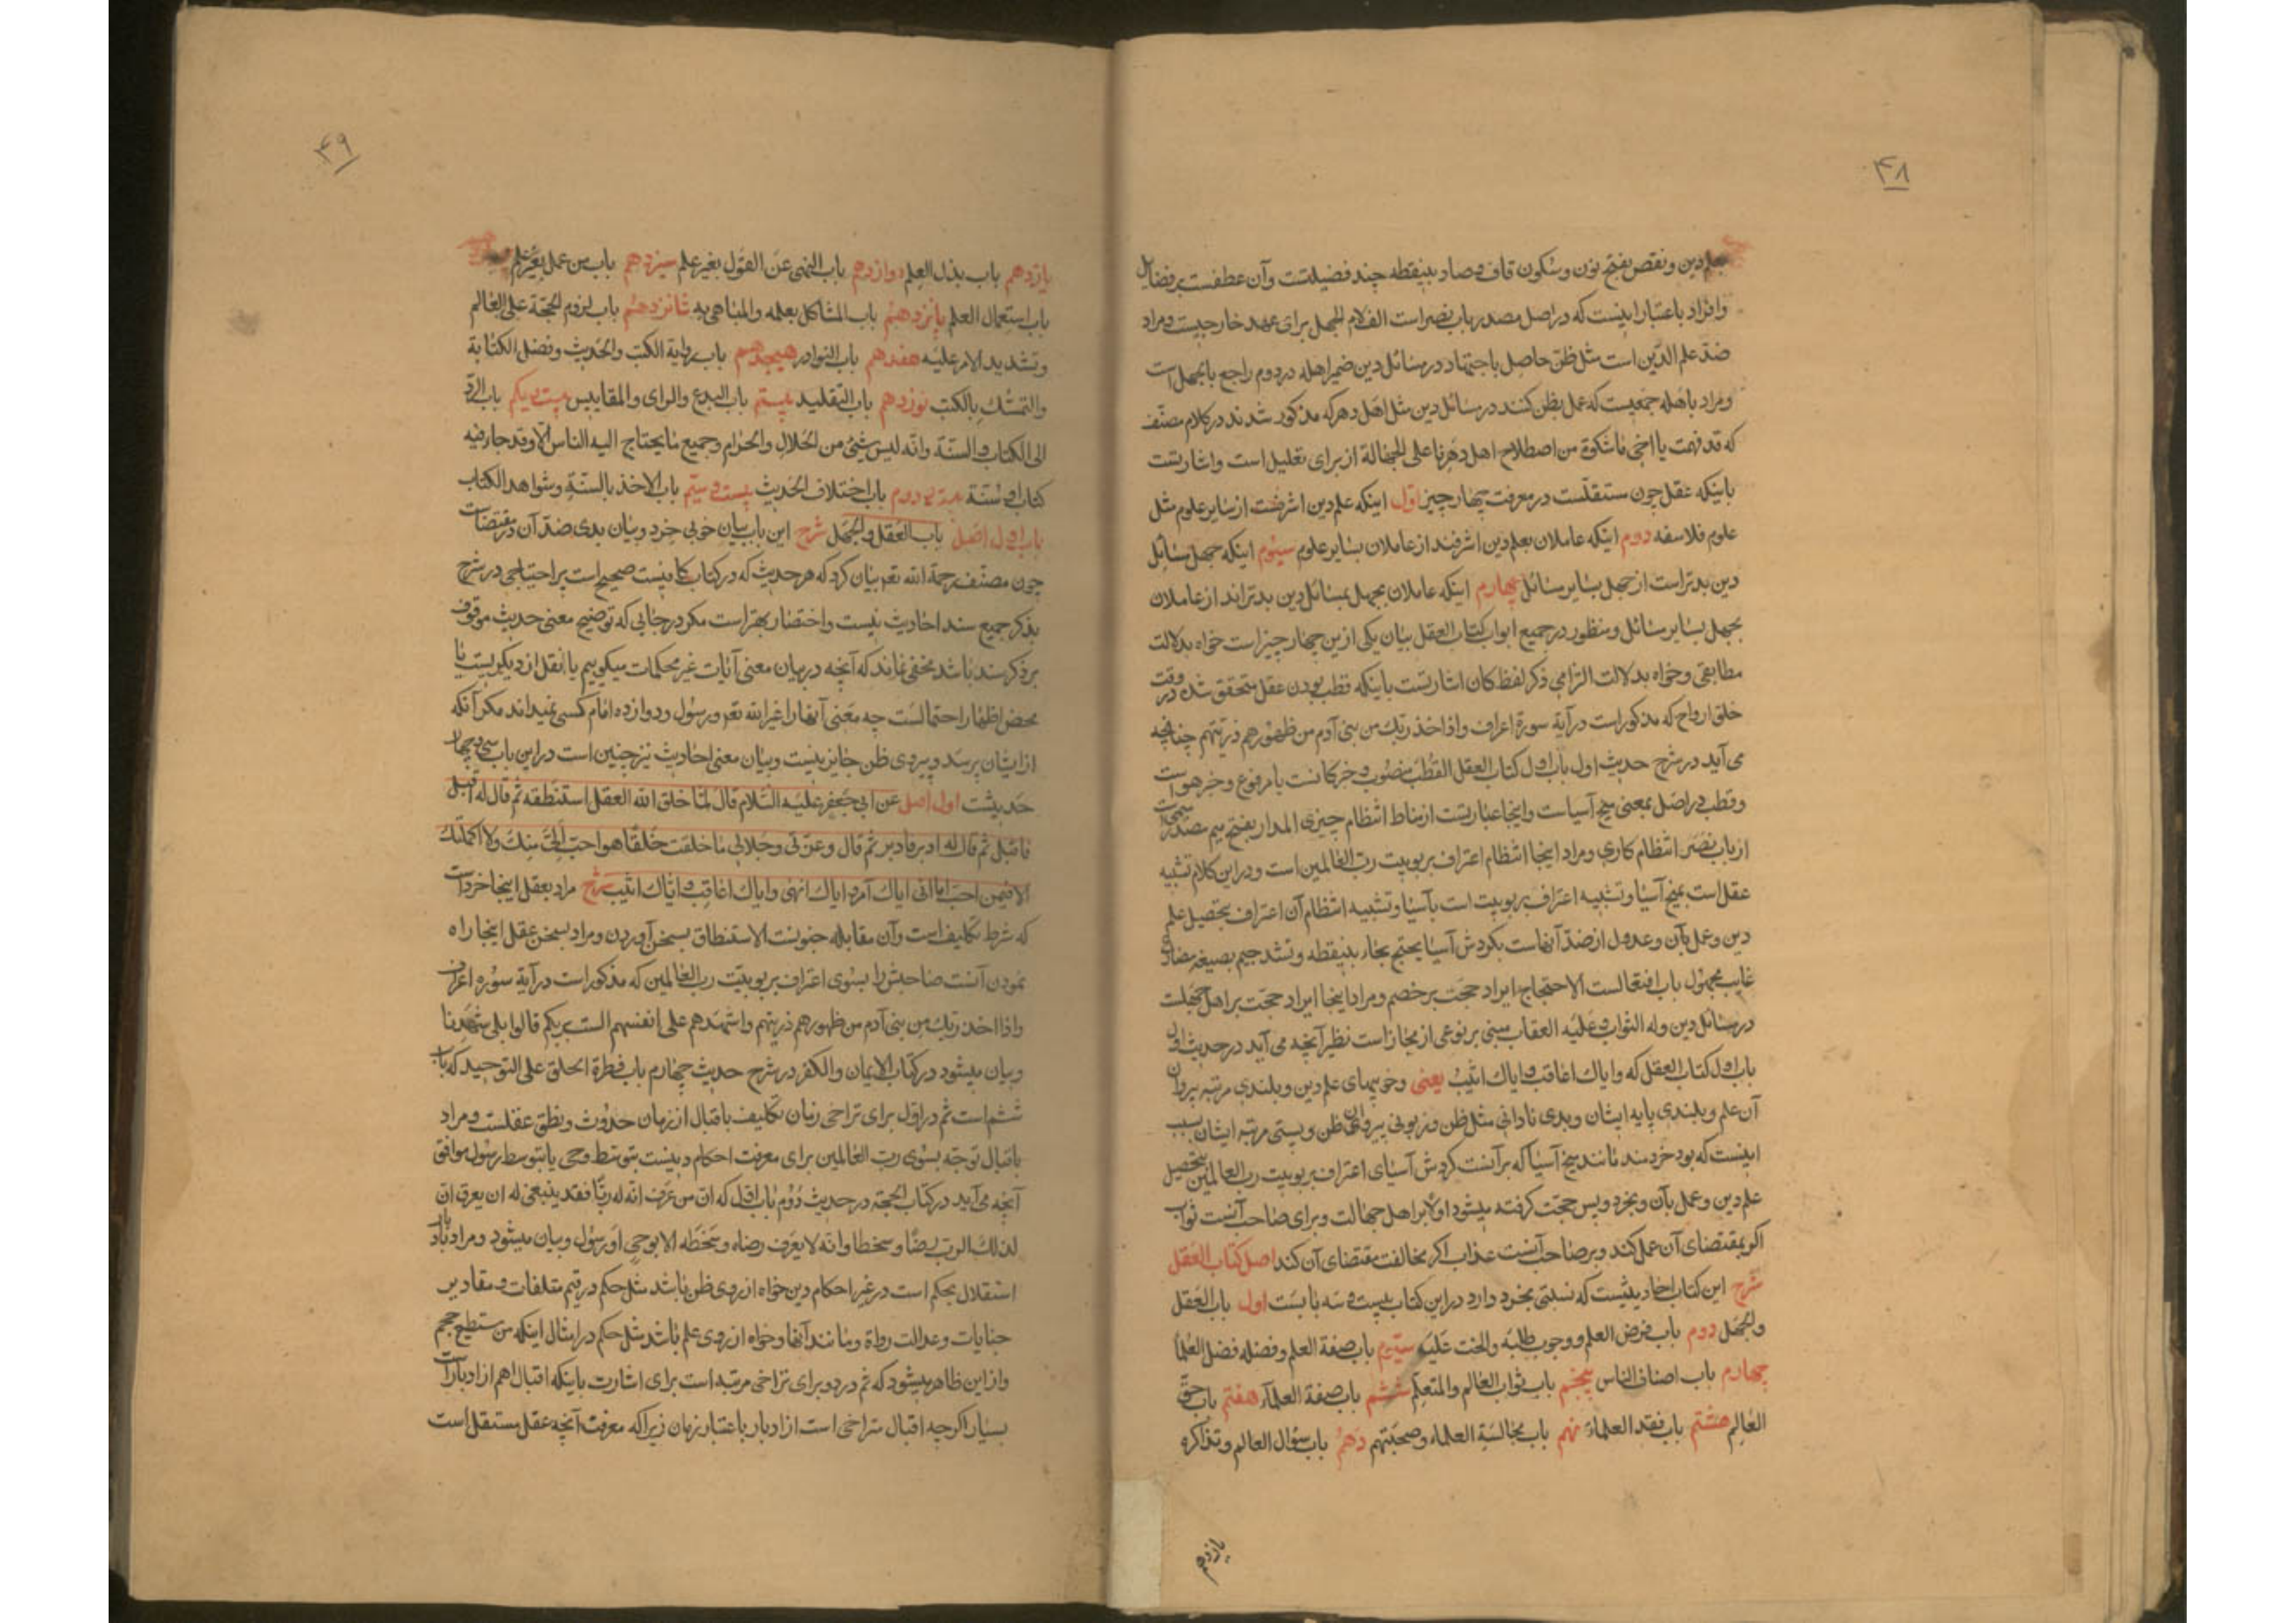 ۴۸
بعلم دین و نقص بفتح نون و سکون قاف و صاد بینقطه چند فضیلتست و آن عطفست بر فضایل
و افراد باعتبار اینست که در اصل مصدر باب نصر است الف لام الجهل برای عهد خارجیست و مراد
ضدّ علم الدّین است مثل ظنّ حاصل باجتهاد در مسائل دین ضمیر اهله در دوم راجع بالجهل است
و مراد باهله جمعیست که عمل بظن کنند در مسائل دین مثل اهل دهر که مذکور شدند در کلام مصنّف
که قد فهمت یا اخی ماشکوت من اصطلاح اهل دهرنا علی الجهالة از برای تعلیل است و اشارتست
باینکه عقل چون مستقلّست در معرفت چهار چیز اوّل اینکه علم دین اشرفست از سایر علوم مثل
علوم فلاسفه دوم اینکه عاملان بعلم دین اشرفند از عاملان بسایر علوم سیّوم اینکه جهل بمسائل
دین بدتر است از جهل بسایر مسائل چهارم اینکه عاملان بجهل بمسائل دین بدتراند از عاملان
بجهل بسایر مسائل و منظور در جمیع ابواب کتاب العقل بیان یکی ازین چهار چیز است خواه بدلالت
مطابقی و خواه بدلالت التزامی ذکر لفظ کان اشارتست باینکه قطب بودن عقل متحقق شده در وقت
خلق ارواح که مذکور است در آیة سورة اعراف واذ اخذ ربّك من بنی آدم من ظهورهم ذریّتهم چنانچه
می آید در شرح حدیث اول باب اول کتاب العقل القطب منصوب و خبر کانست یا مرفوع و خبر هو است
و قطب در اصل بمعنی میخ آسیاست و اینجا عبارتست از مناط انتظام چیزی المدار بفتح میم مصدر میمی است
از باب نصَر انتظام کاری و مراد اینجا انتظام اعتراف بربوبیت ربّ العالمین است و در این کلام تشبیه
عقل است بمیخ آسیا و تشبیه اعتراف بربوبیت است بآسیا و تشبیه انتظام آن اعتراف بتحصیل علم
دین و عمل بآن و عدول از ضدّ آنهاست بکردش آسیا یحتج بحاء بینقطه و تشدید جیم بصیغه مضارع
غایب مجهول باب افتعالست الاحتجاج ایراد حجّت بر خصم و مراد اینجا ایراد حجّت بر اهل جهلت
در مسائل دین وله الثواب و علیه العقاب مبنی بر نوعی از مجاز است نظیر آنچه می آید در حدیث اول
باب اول کتاب العقل که و ایاك اعاقب و ایاك اثیب یعنی و خوبیهای علم دین و بلندی مرتبه پیروان
آن علم و بلندی پایه ایشان و بدی نادانی مثل ظن و زبونی پیروان ظن و پستی مرتبه ایشان بسبب
اینست که بود خردمند مانند میخ آسیا که بر آنست کردش آسیای اعتراف بربوبیت رب العالمین بتحصیل
علم دین و عمل بآن و بخرد و بس حجّت کرفته میشود اولا بر اهل جهالت و برای صاحب آنست ثواب
اکر بمقتضای آن عمل کند و بر صاحب آنست عذاب اکر مخالفت مقتضای آن کند اصل کتاب العقل
شرح این کتاب احادیثیست که نسبتی بخرد دارد در این کتاب بیست و سه بابست اول باب العقل
والجهل دوم باب فرض العلم و وجوب طلبه والحث علیه سیّوم باب صفة العلم و فضله و فضل العلما
چهارم باب اصناف الناس پنجم باب ثواب العالم والمتعلم ششم باب صفة العلماء هفتم باب حقّ
العالم هشتم باب فقد العلماء نهم باب مجالسة العلماء و صحبتهم دهم باب سؤال العالم و تذاکره
یازدهم
۴۹
یازدهم باب بذل العلم دوازدهم باب النهی عن القول بغیر علم سیزدهم باب من عمل بغیر علم
باب استعمال العلم پانزدهم باب المتاکل بعلمه والمباهی به شانزدهم باب لزوم الحجّة علی العالم
و تشدید الامر علیه هفدهم باب النوادر هیجدهم باب روایة الکتب والحدیث و فضل الکتابة
والتمسّك بالکتب نوزدهم باب التقلید بیستم باب البدع والرای والمقاییس بیست و یکم باب الردّ
الی الکتاب والسنّة وانّه لیس شیئ من الحلال والحرام وجمیع مایحتاج الیه الناس الّا وقد جاء فیه
کتاب او سُنّة بیست و دوم باب اختلاف الحدیث بیست و سیّم باب الاخذ بالسنّة وشواهد الکتاب
باب اول اصل باب العقل والجهل شرح این باب بیان خوبی خرد و بیان بدی ضدّ آن در مقتضات
چون مصنّف رحمة الله تعم بیان کرد که هر حدیث که در کتاب کافیست صحیح است پر احتیاجی در شرح
بذکر جمیع سند احادیث نیست و اختصار بهتر است مکر در جائی که توضیح معنی حدیث موقوف
بر ذکر سند باشد مخفی نماند که آنچه در بیان معنی آیات غیر محکمات میکوییم یا نقل از دیکریست یا
محض اظهار احتمالست چه معنی آنها را غیر الله تعم و رسول و دوازده امام کسی نمیداند مکر آنکه
از ایشان پرسد و پیروی ظن جایز نیست و بیان معنی احادیث نیز چنین است در این باب سی و چهار
حدیثست اول اصل عن ابی جعفر علیه السّلام قال لمّا خلق الله العقل استنطقه ثم قال له اقبل
فاقبل ثم قال له ادبر فادبر ثم قال وعزّتی وجلالی ماخلقت خلقًا هو احبّ الیّ منك ولا اکملتك
الا فیمن احبّ اما انی ایاك آمر و ایاك انهی وایاك اعاقب و ایّاك اثیب شرح مراد بعقل اینجا خرد است
که شرط تکلیف است و آن مقابله جنونست الاستنطاق بسخن آوردن و مراد بسخن عقل اینجا راه
نمودن آنست صاحبش را بسوی اعتراف بربوبیّت ربّ العالمین که مذکور است در آیة سوره اعراف
واذ اخذ ربّك من بنی آدم من ظهورهم ذریتهم واشهدهم علی انفسهم الست بربکم قالوا بلی شهدنا
و بیان میشود در کتاب الایمان والکفر در شرح حدیث چهارم باب فطرة الخلق علی التوحید که باب
ششم است ثم در اوّل برای تراخی زمان تکلیف باقبال از زمان حدوث و نطق عقلست و مراد
باقبال توجّه بسوی ربّ العالمین برای معرفت احکام دینیست بتوسّط وحی یا بتوسط رسول موافق
آنچه می آید در کتاب الحجّة در حدیث دُوُم باب اوّل که انّ من عرف انّه له ربّا فقد ینبغی له ان یعرف انّ
لذلك الربّ رضًا وسخطا وانّه لا یعرف رضاه وسخطه الا بوحیٍ او رسول و بیان میشود و مراد بادبار
استقلال بحکم است در غیر احکام دین خواه از روی ظن باشد مثل حکم در قیم متلفات و مقادیر
جنایات و عدالت رواة و مانند آنها و خواه از روی علم باشد مثل حکم در امثال اینکه من مستطیع حجم
و از این ظاهر میشود که ثم در دوم برای تراخی مرتبه است برای اشارت باینکه اقبال اهم از ادبار است
بسیار اکرچه اقبال متراخی است از ادبار باعتبار زمان زیرا که معرفت آنچه عقل مستقل است